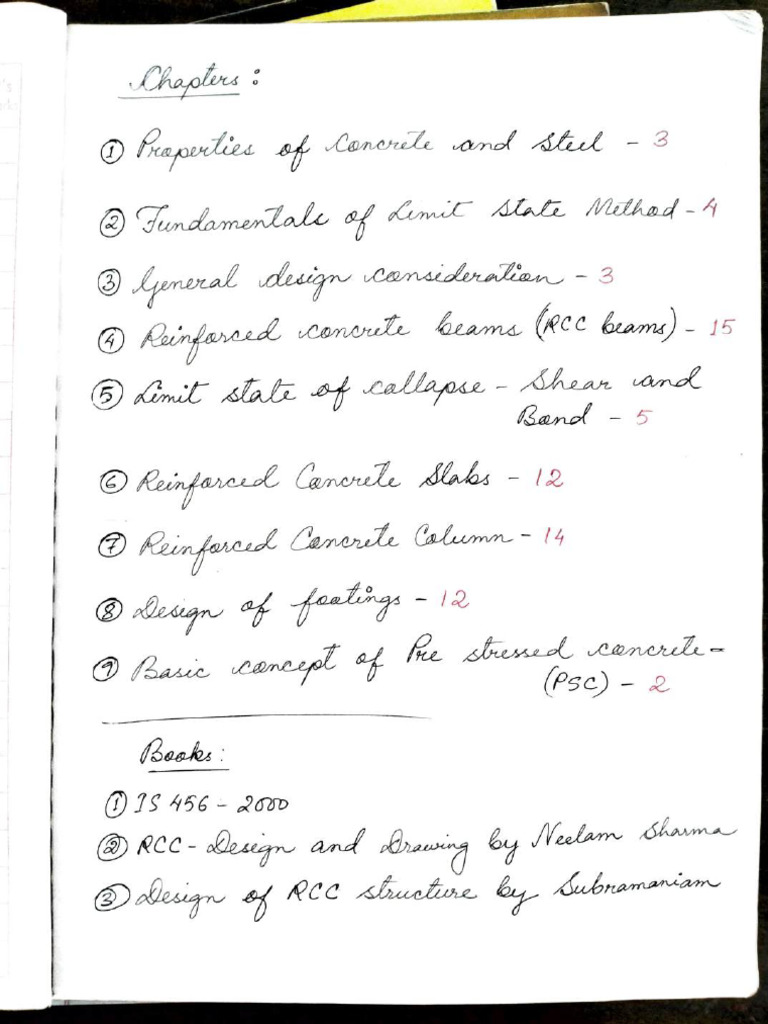 Chapters :
① Properties of Concrete and Steel - 3
② Fundamentals of Limit State Method - 4
③ General design consideration - 3
④ Reinforced concrete beams (RCC beams) - 15
⑤ Limit state of collapse - Shear and
Bond - 5
⑥ Reinforced Concrete Slabs - 12
⑦ Reinforced Concrete Column - 14
⑧ Design of footings - 12
⑨ Basic concept of Pre stressed concrete -
(PSC) - 2
Books :
① IS 456 - 2000
② RCC - Design and Drawing by Neelam Sharma
③ Design of RCC structure by Subramaniam